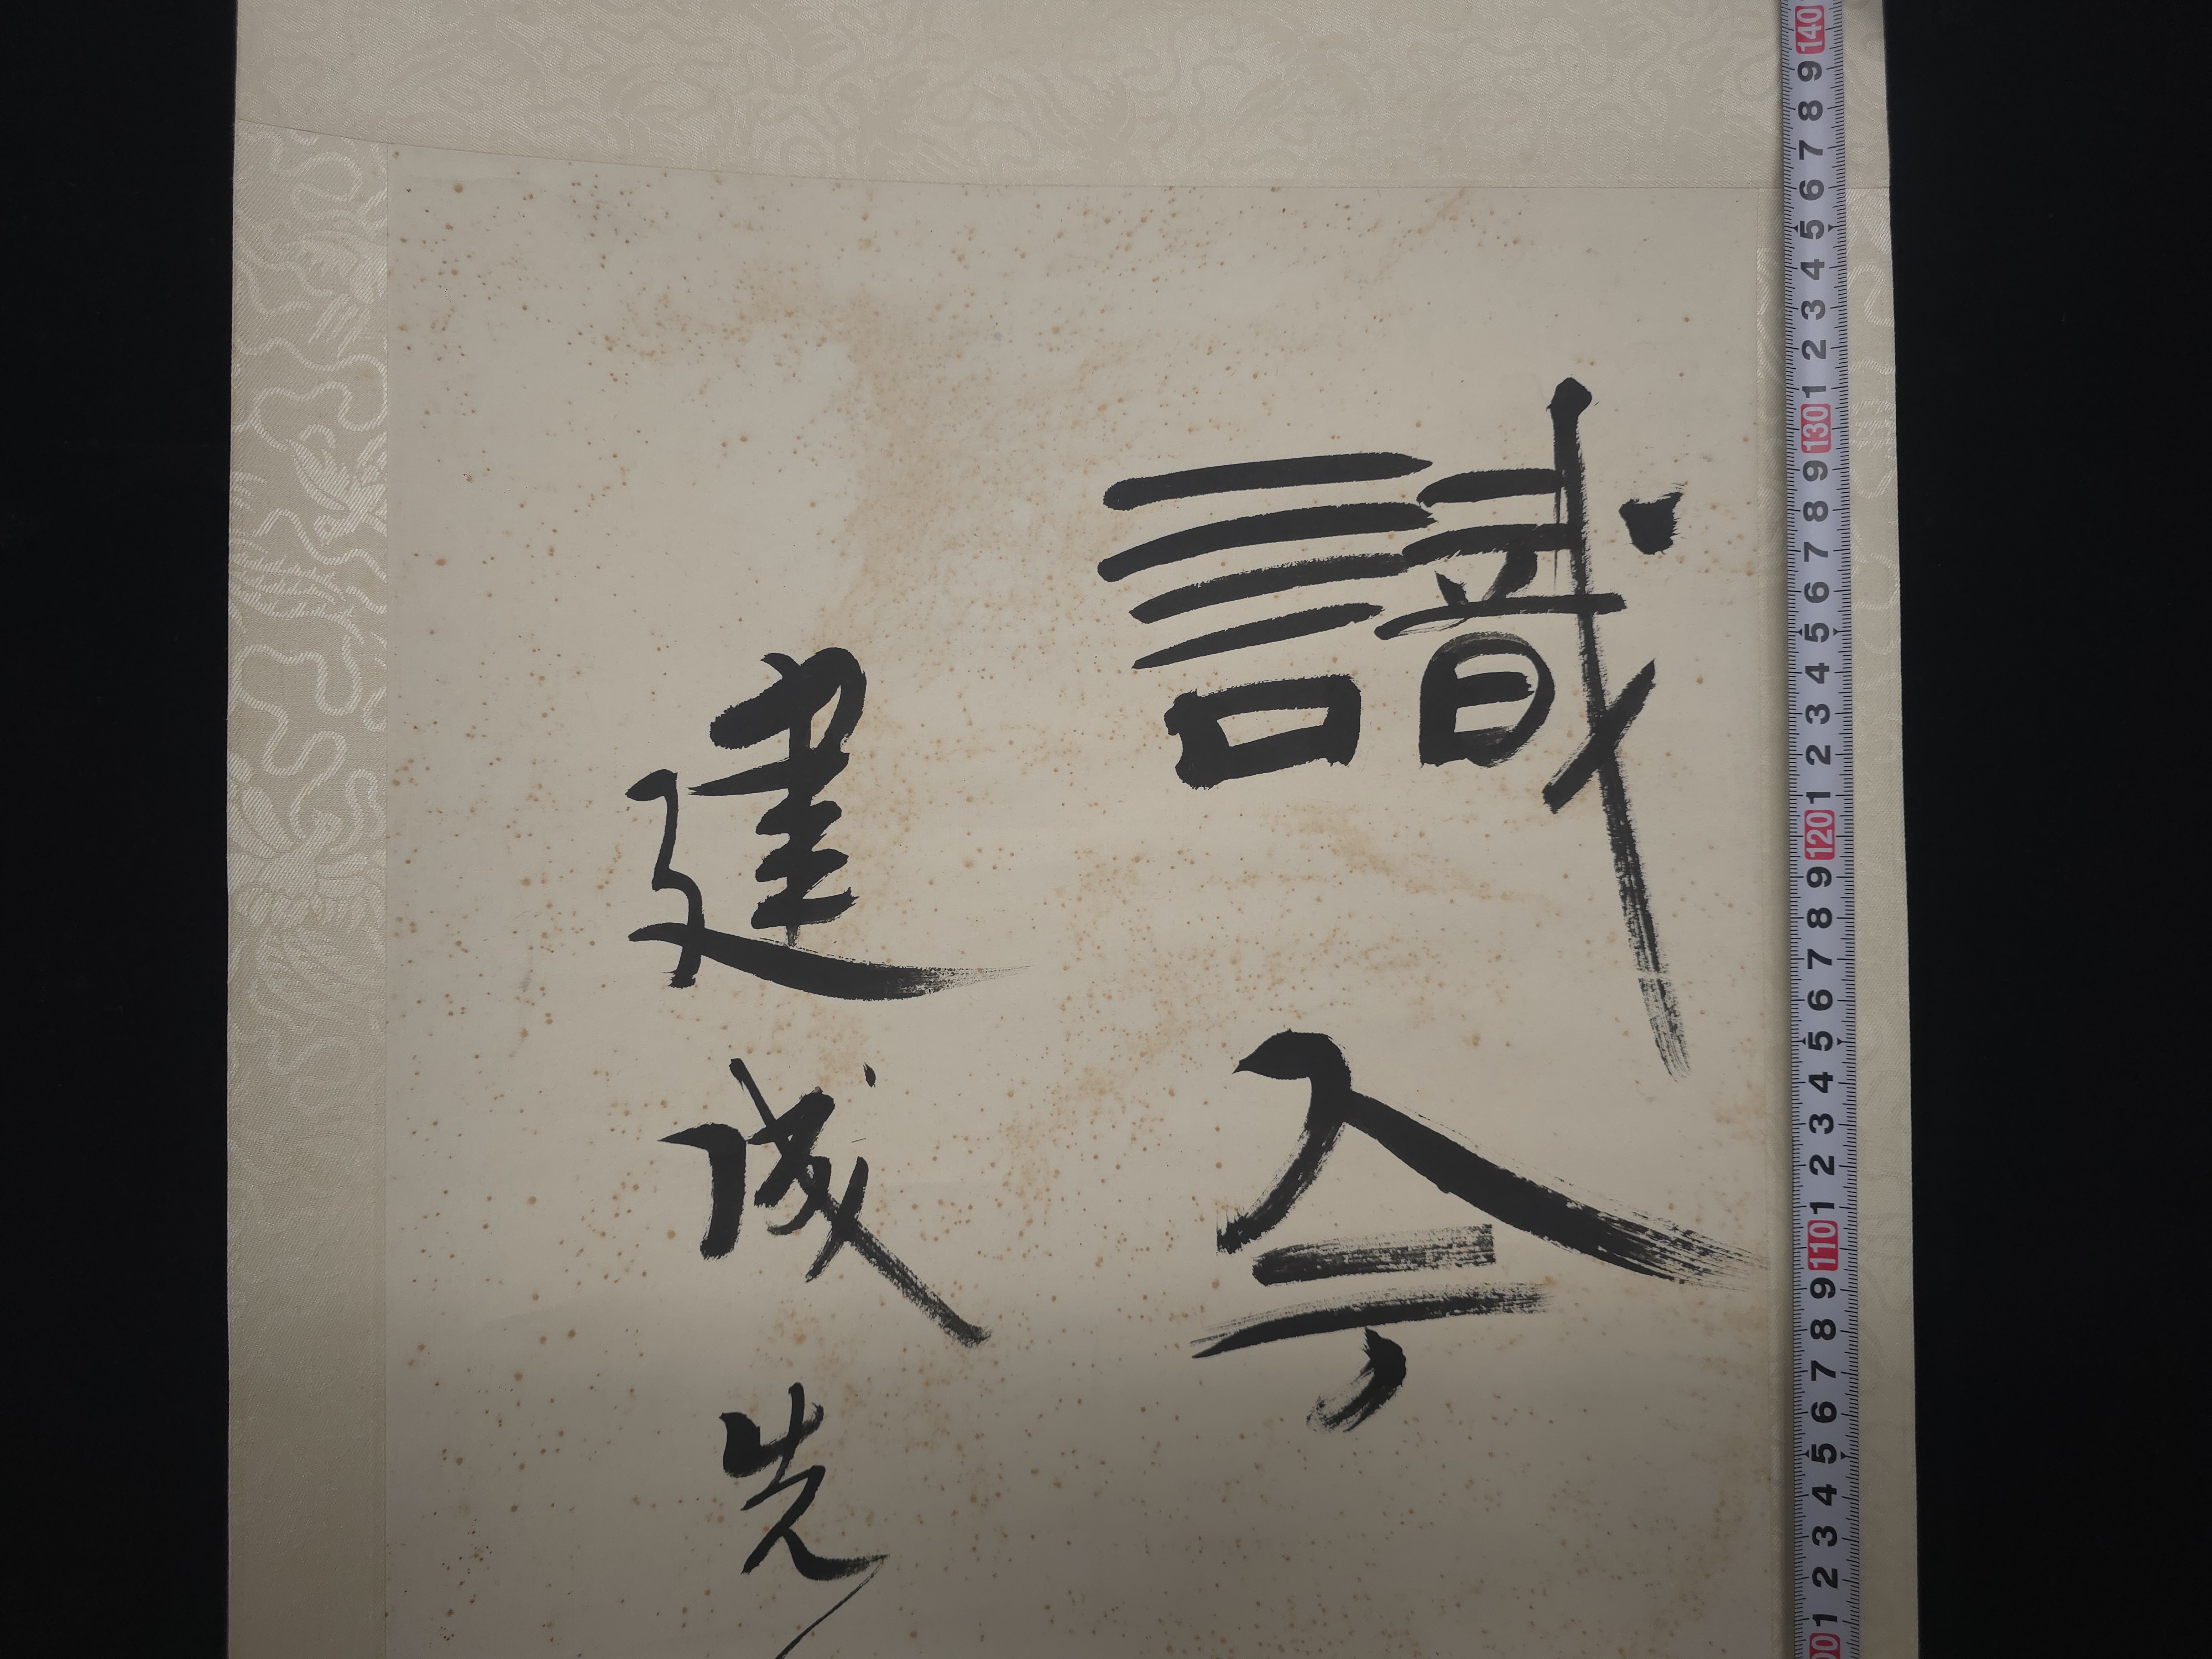 識今
建成先
140
9
8
7
6
5
4
3
2
1
130
9
8
7
6
5
4
3
2
1
120
9
8
7
6
5
4
3
2
1
110
9
8
7
6
5
4
3
2
1